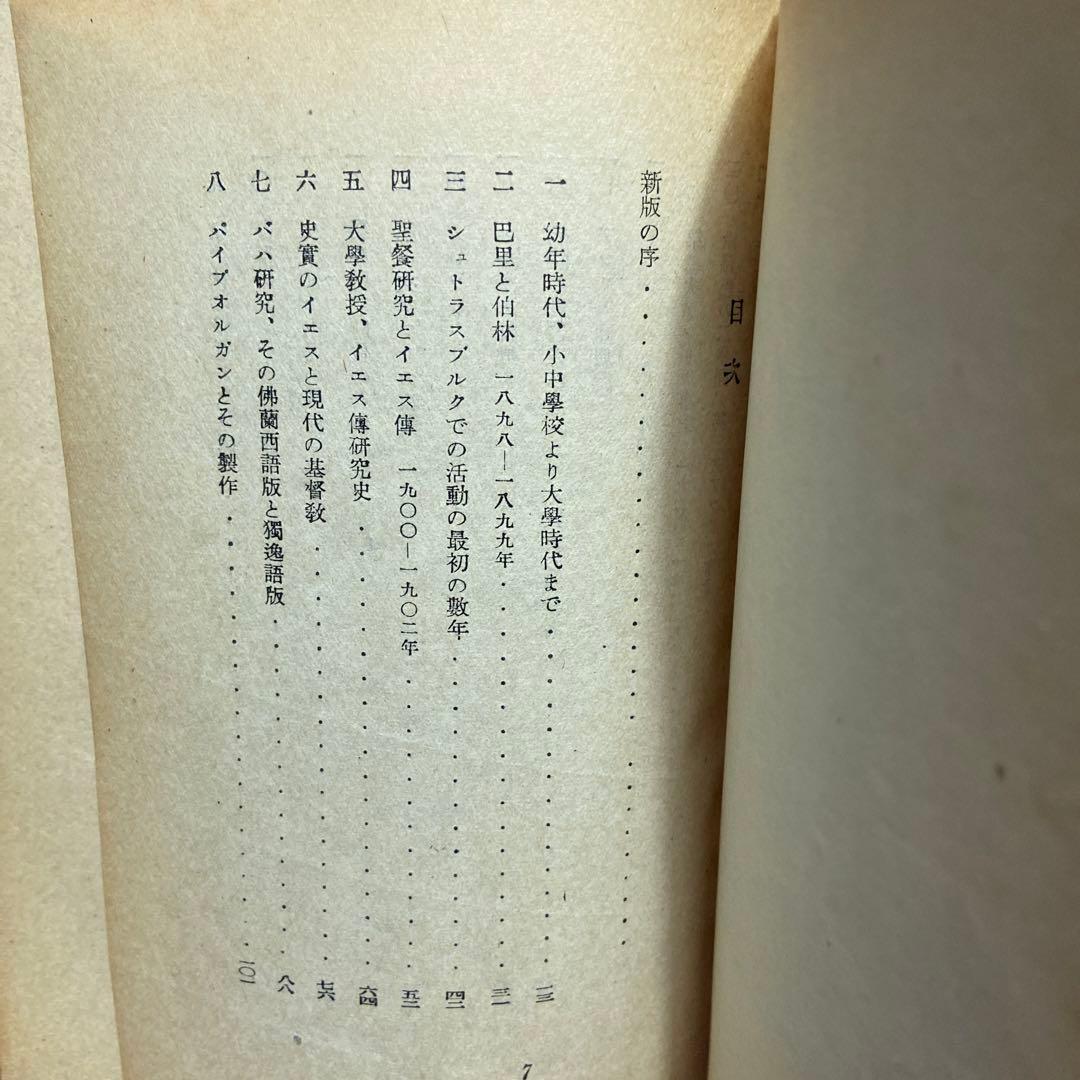 目次
新版の序
一 幼年時代、小中學校より大學時代まで 一三
二 巴里と伯林 一八九八―一八九九年 三一
三 シュトラスブルクでの活動の最初の數年 四二
四 聖餐硏究とイエス傳 一九〇〇―一九〇二年 五三
五 大學敎授、イエス傳硏究史 六四
六 史實のイエスと現代の基督敎 七六
七 バハ硏究、その佛蘭西語版と獨逸語版 八八
八 パイプオルガンとその製作 一〇一
7